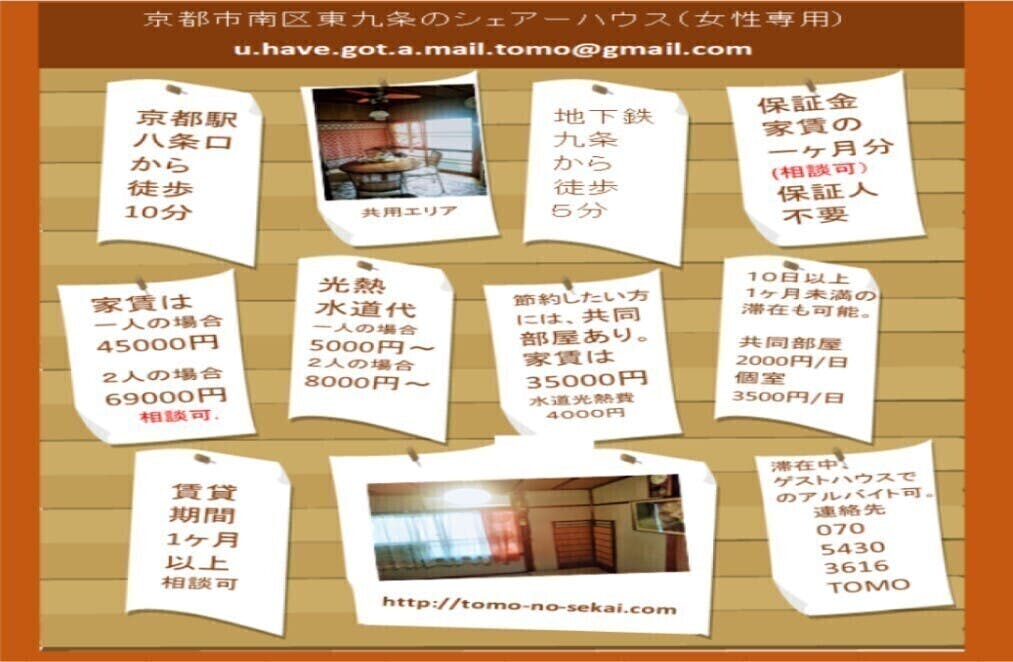 京都市南区東九条のシェアーハウス(女性専用)
u.have.got.a.mail.tomo@gmail.com
京都駅
八条口
から
徒歩
10分
共用エリア
地下鉄
九条
から
徒歩
5分
保証金
家賃の
一ヶ月分
(相談可)
保証人
不要
家賃は
一人の場合
45000円
2人の場合
69000円
相談可.
光熱
水道代
一人の場合
5000円～
2人の場合
8000円～
節約したい方
には、共同
部屋あり。
家賃は
35000円
水道光熱費
4000円
10日以上
1ヶ月未満の
滞在も可能。
共同部屋
2000円/日
個室
3500円/日
賃貸
期間
1ヶ月
以上
相談可
http://tomo-no-sekai.com
滞在中、
ゲストハウスで
のアルバイト可。
連絡先
070
5430
3616
TOMO